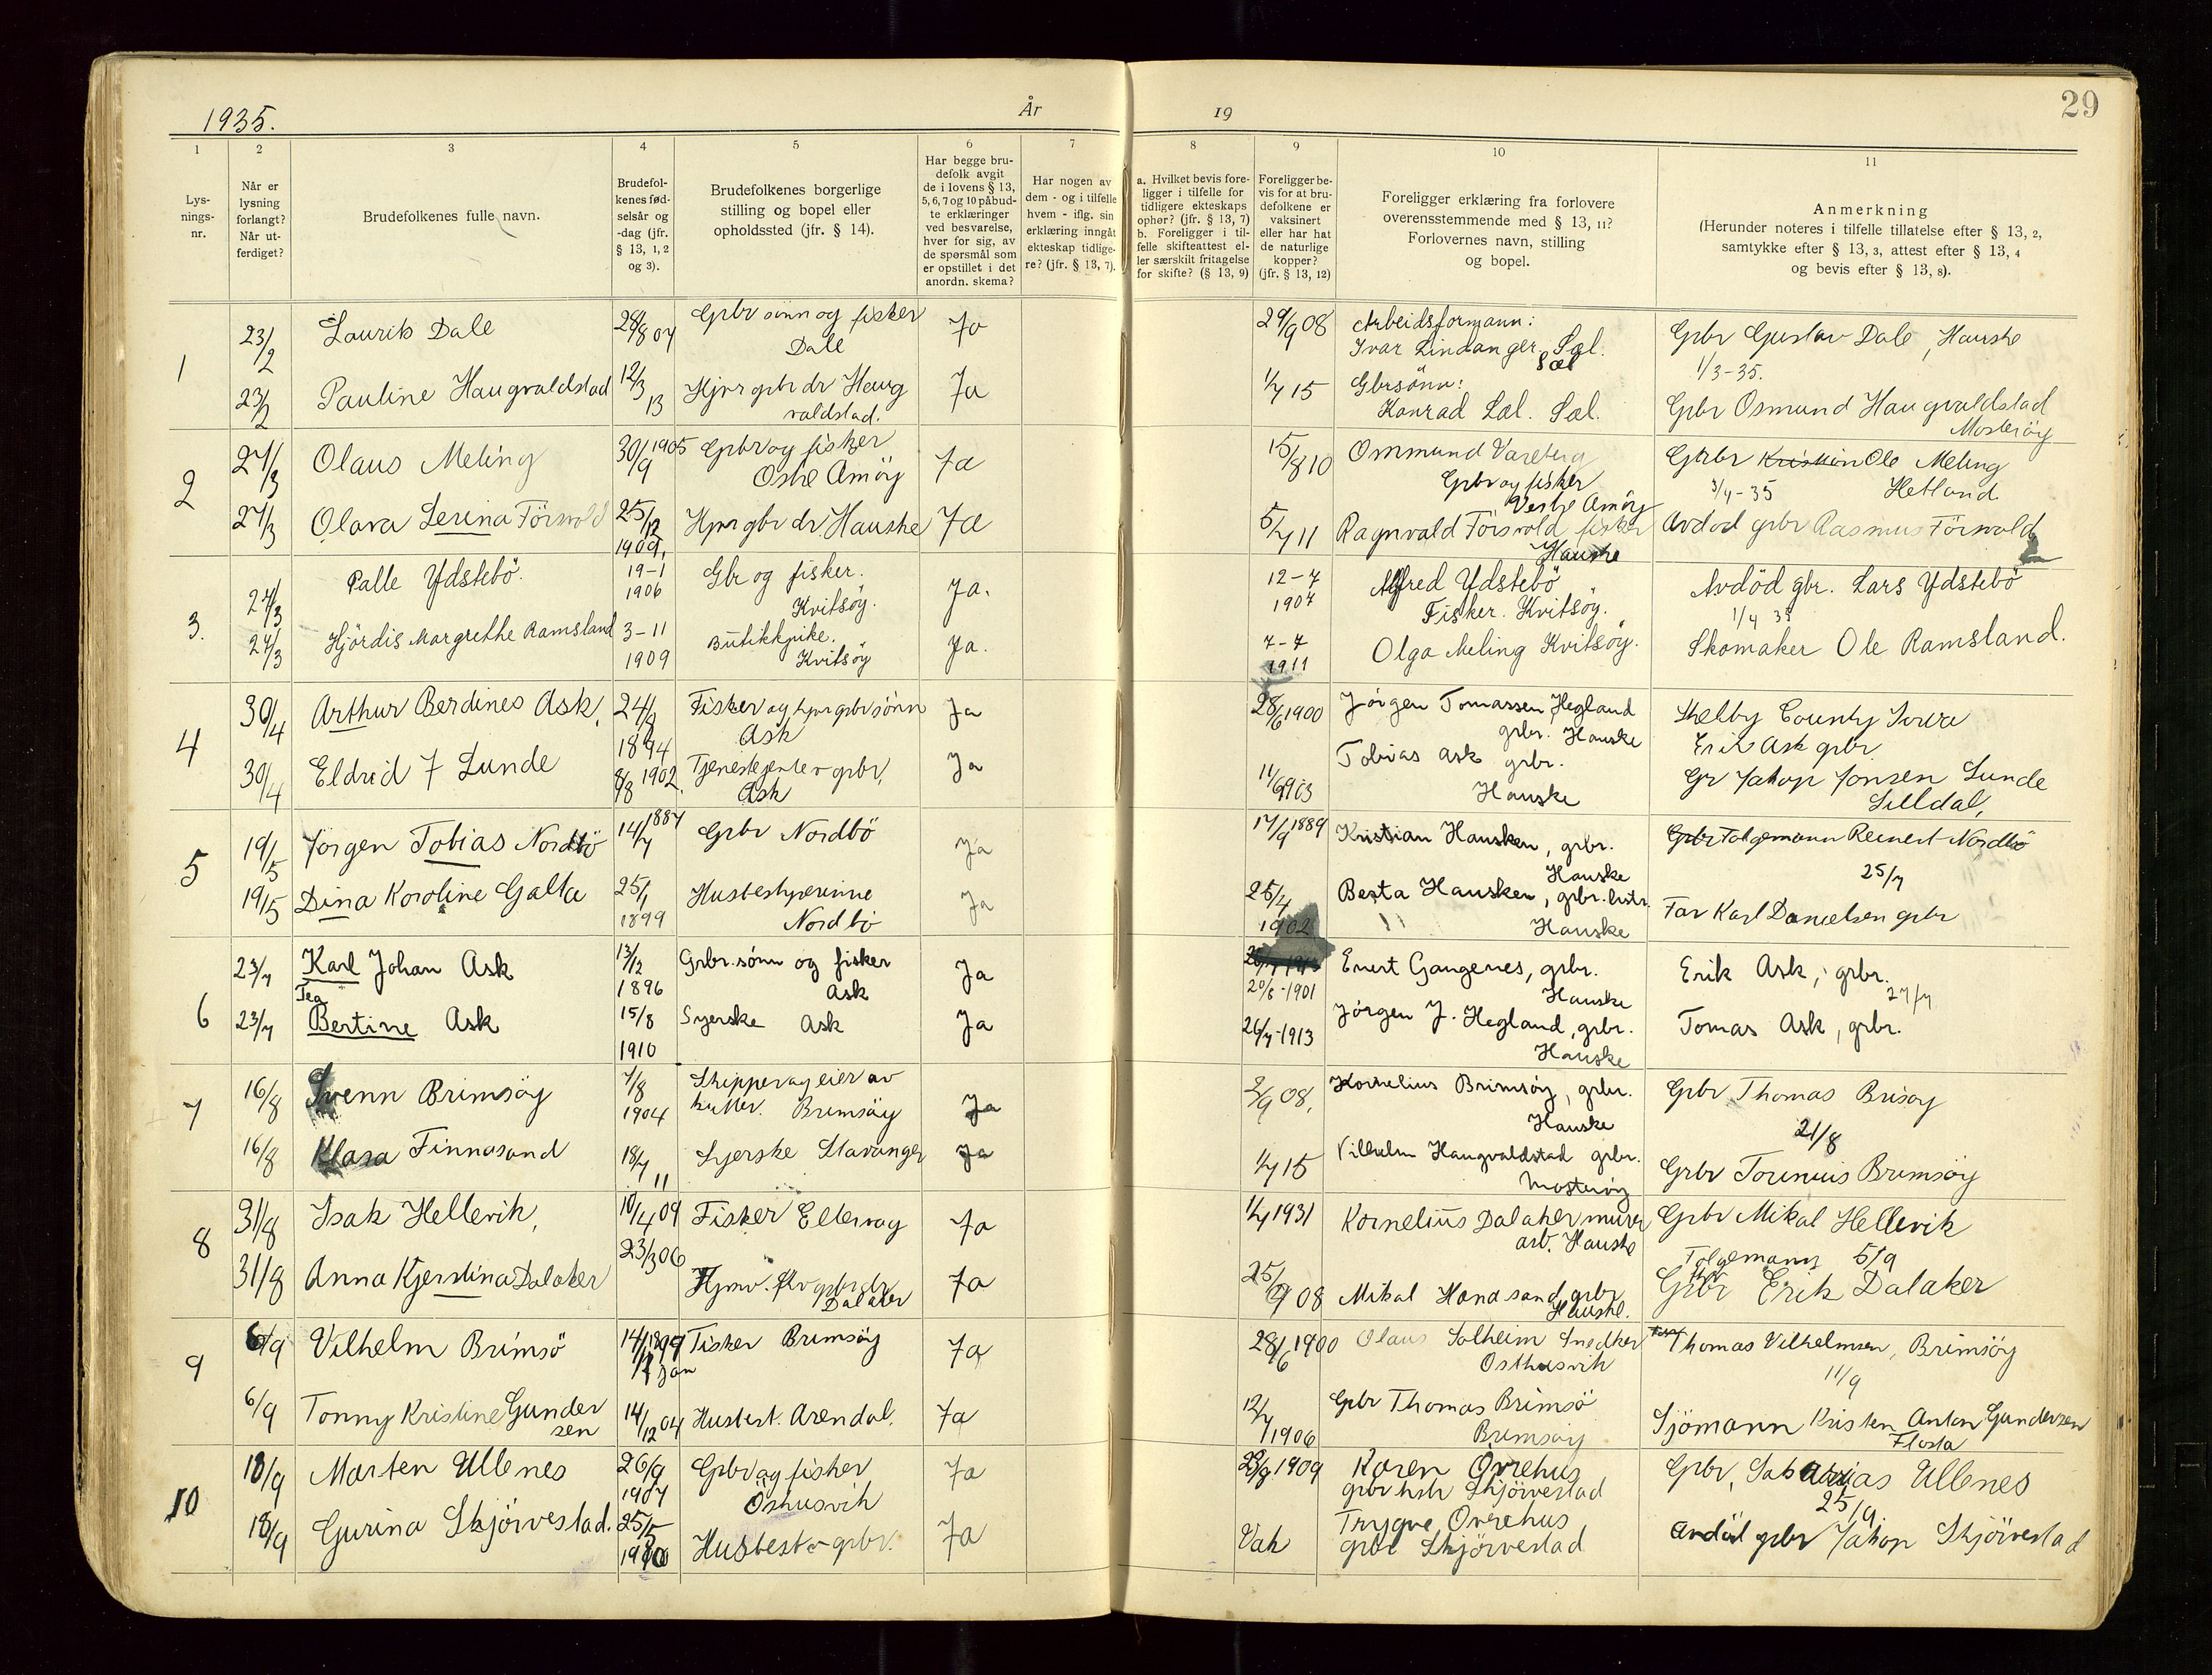 1935.
År
19
29
1
2
3
4
5
6
7
8
9
10
11
Lys-
nings-
nr.
Når er
lysning
forlangt?
Når ut-
ferdiget?
Brudefolkenes fulle navn.
Brudefol-
kenes fød-
selsår og
-dag (jfr.
§ 13, 1, 2
og 3).
Brudefolkenes borgerlige
stilling og bopel eller
opholdssted (jfr. § 14).
Har begge bru-
defolk avgit
de i lovens § 13,
5, 6, 7 og 10 påbud-
te erklæringer
ved besvarelse,
hver for sig, av
de spørsmål som
er opstillet i det
anordn. skema?
Har nogen av
dem - og i tilfelle
hvem - iflg. sin
erklæring inngått
ekteskap tidlige-
re? (jfr. § 13, 7).
a. Hvilket bevis fore-
ligger i tilfelle for
tidligere ekteskaps
ophør? (jfr. § 13, 7)
b. Foreligger i til-
felle skifteattest el-
ler særskilt fritagelse
for skifte? (§ 13, 9)
Foreligger be-
vis for at bru-
defolkene er
vaksinert
eller har hat
de naturlige
kopper?
(jfr. § 13, 12)
Foreligger erklæring fra forlovere
overensstemmende med § 13, 11?
Forlovernes navn, stilling
og bopel.
Anmerkning
(Herunder noteres i tilfelle tillatelse efter § 13, 2,
samtykke efter § 13, 3, attest efter § 13, 4
og bevis efter § 13, 8).
1
23/2
Laurits Dale
28/8 07
Gbr sønn og fisker
Dale
Ja
29/9 08
Arbeidsformann:
Ivar Lindanger, Sæl.
Sæl
Gbr Gustav Dale, Hauske
1/3-35.
23/2
Pauline Haugvaldstad
12/3 13
Hjvr gbr dr Haug
valdstad.
Ja
1/7 15
Gbrsønn:
Konrad Sæl. Sæl.
Gbr Osmund Haugvaldstad
Mosterøy
2
27/3
Olaus Meling
30/9 1905
Gbr og fisker
Østre Åmøy
Ja
15/8 10
Ommund Vareberg
Gbr og fisker
Vestre Åmøy
Gbr Kristian Ole Meling
3/4-35 Hetland.
27/3
Olava Serina Førsvold
25/12
1909.
Hjvr gbr dr. Hauske
Ja
5/7 11
Ragnvald Førsvold fisker
Hauske
Avdød gbr Rasmus Førsvold
3.
27/3
Palle Ydstebö.
19-1
1906
Gbr og fisker.
Kvitsøy.
Ja.
12-7
1907
Alfred Ydstebö
Fisker. Kvitsøy.
Avdöd gbr. Lars Ydstebö
1/4 35
27/3
Hjördis Margrethe Ramsland
3-11
1909
Butikkpike.
Kvitsøy
Ja.
7-7
1911
Olga Meling Kvitsøy.
Skomaker Ole Ramsland.
4
30/4
Arthur Berdines Ask,
24/9
1894
Fisker og hjvr gbr sønn
Ask
Ja
28/6 1900
Jørgen Tomassen Hegland
gbr. Hauske
Shelby County Iowa
Erik Ask gbr
30/4
Eldrid J Lunde
8/8 1902.
Tjenestejente gbr,
Ask
Ja
11/6 1903
Tobias Ask gbr.
Hauske
Gr Jakop Jonsen Lunde
Suldal,
5
19/5
Jørgen Tobias Nordbö
14/7 1887
Gbr Nordbö
Ja
17/9 1889
Kristian Hausken, grbr.
Hauske
Gbr Følgemann Reinert Nordbö
25/7
19/5
Dina Karoline Galta
25/1
1899
Husbestyrerinne
Nordbö
Ja
25/4
1902
Berta Hausken, grbr. hstr.
Hauske
Far Karl Danielsen gbr
6
23/7
Karl Johan Ask
13/12
1896
Grbr.sønn og fisker
Ask
Ja
20/8-1901
Enert Gangenes, grbr.
Hauske
Erik Ask, grbr.
27/7
23/7
Tea
Bertine Ask
15/8
1910
Syerske Ask
Ja
26/7-1913
Jørgen J. Hegland, grbr.
Hauske
Tomas Ask, grbr.
7
16/8
Svenn Brimsøy
7/8
1904
Skipper og eier av
kutter. Brimsøy
Ja
2/9 08,
Kornelius Brimsøy, grbr.
Hauske
Gbr Thomas Brisøy
21/8
16/8
Klara Finnasand
18/7 11
Syerske Stavanger
Ja
1/7 15
Vilhelm Haugvaldstad grbr.
Mosterøy
Gbr Tourinius Brimsøy
8
31/8
Isak Hellevik,
10/4 09
Fisker Ellevag
Ja
1/7 1931
Kornelius Dalaker murer
arb. Hauske
Gbr Mikal Hellevik
Følgemann 5/9
31/8
Anna Kjerstina Dalaker
23/3 06
Hjmv. gbr dr
Dalaker
Ja
25/9 08
Mikal Hanasand, grbr
Hauske.
Gbr Erik Dalaker
9
6/9
Vilhelm Brimsö
14/1 1899
Jan
Fisker Brimsøy
Ja
28/6 1900
Olaus Solheim Snedker
Østhusvik
Thomas Vilhelmsen, Brimsøy
11/9
6/9
Tonny Kristine Gunder
sen
14/12 04
Husbest. Arendal.
Ja
12/7 1906
Gbr Thomas Brimsö
Brimsøy
Sjömann Kristen Anton Gundersen
Flosta
10
18/9
Marten Ullenes
26/9
1907
Gbr og fisker
Østhusvik
Ja
23/8 1909
Karen Øvrehus
gbr hstr Skjörvestad
Gbr, Sakarias Ullenes
25/9
18/9
Gurina Skjörvestad.
25/5
1900
Husbest gbr.
Ja
Vak
Trygve Øvrehus
gbr Skjörvestad
Avdöd gbr Jakop Skjörvestad